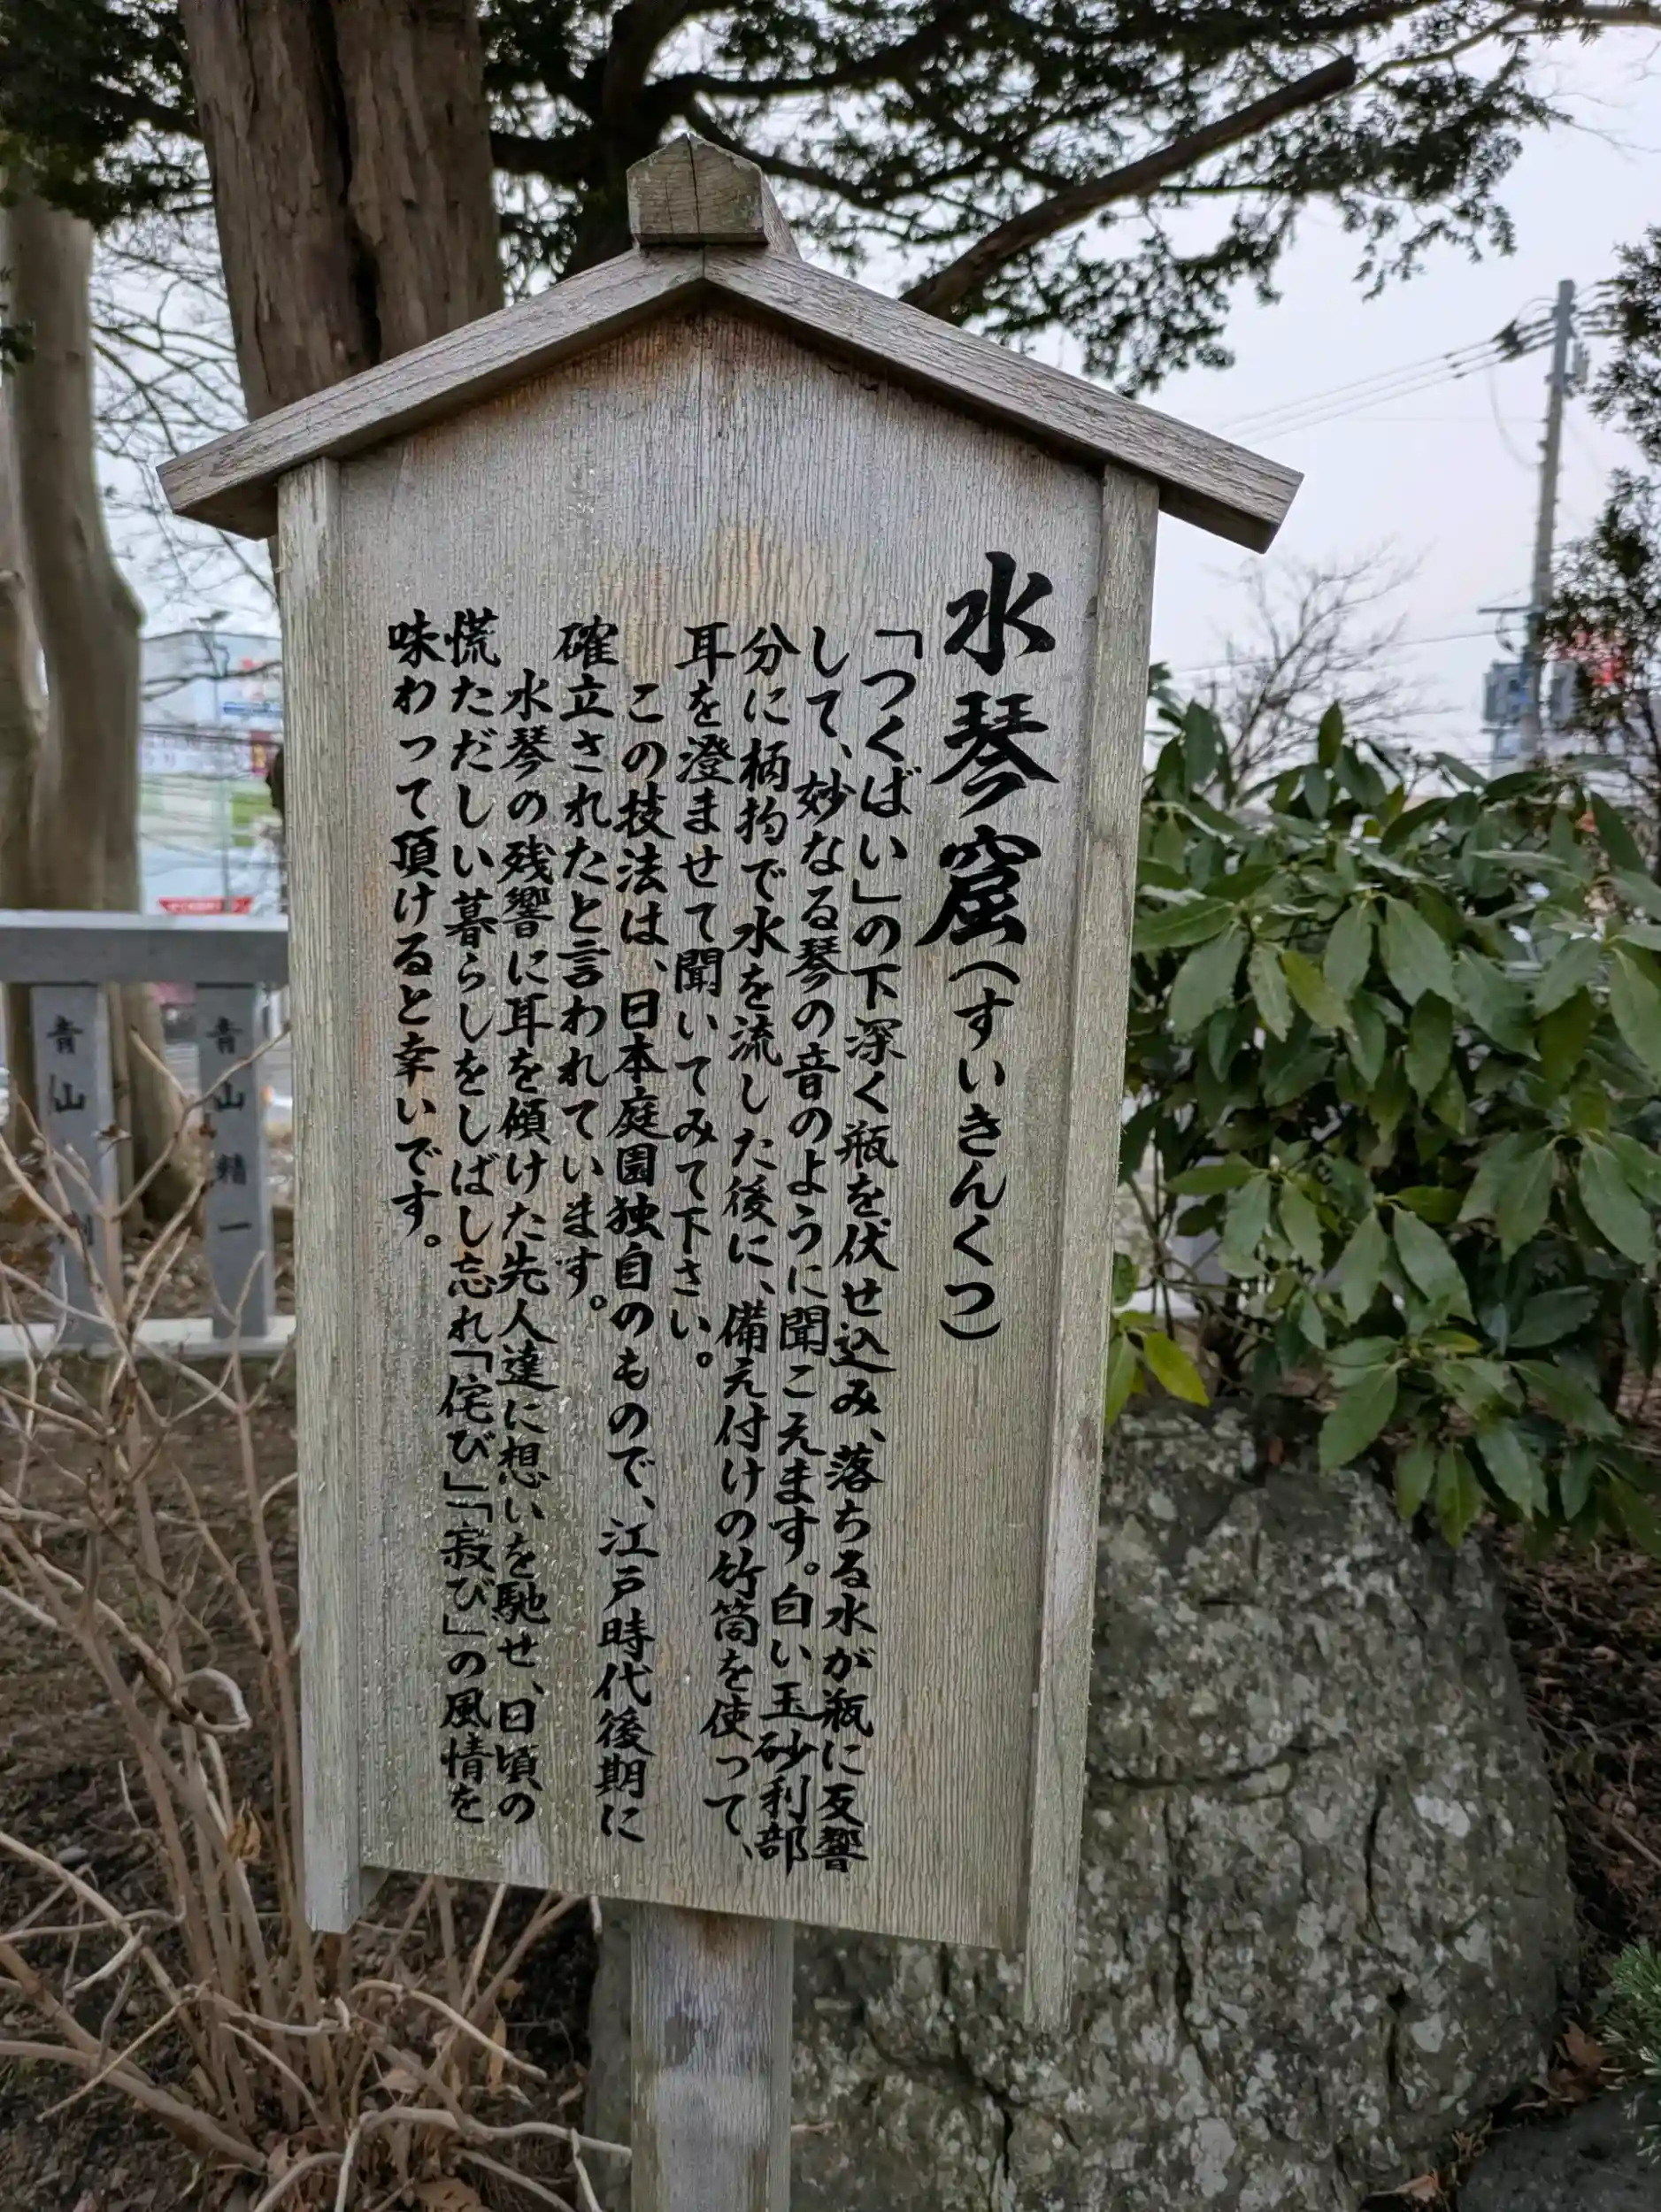 水琴窟(すいきんくつ)
「つくばい」の下深く瓶を伏せ込み、落ちる水が瓶に反響
して、妙なる琴の音のように聞こえます。白い玉砂利部
分に柄杓で水を流した後に、備え付けの竹筒を使って、
耳を澄ませて聞いてみて下さい。
この技法は、日本庭園独自のもので、江戸時代後期に
確立されたと言われています。
水琴の残響に耳を傾けた先人達に想いを馳せ、日頃の
慌ただしい暮らしをしばし忘れ「侘び」「寂び」の風情を
味わって頂けると幸いです。
青山
青山精一